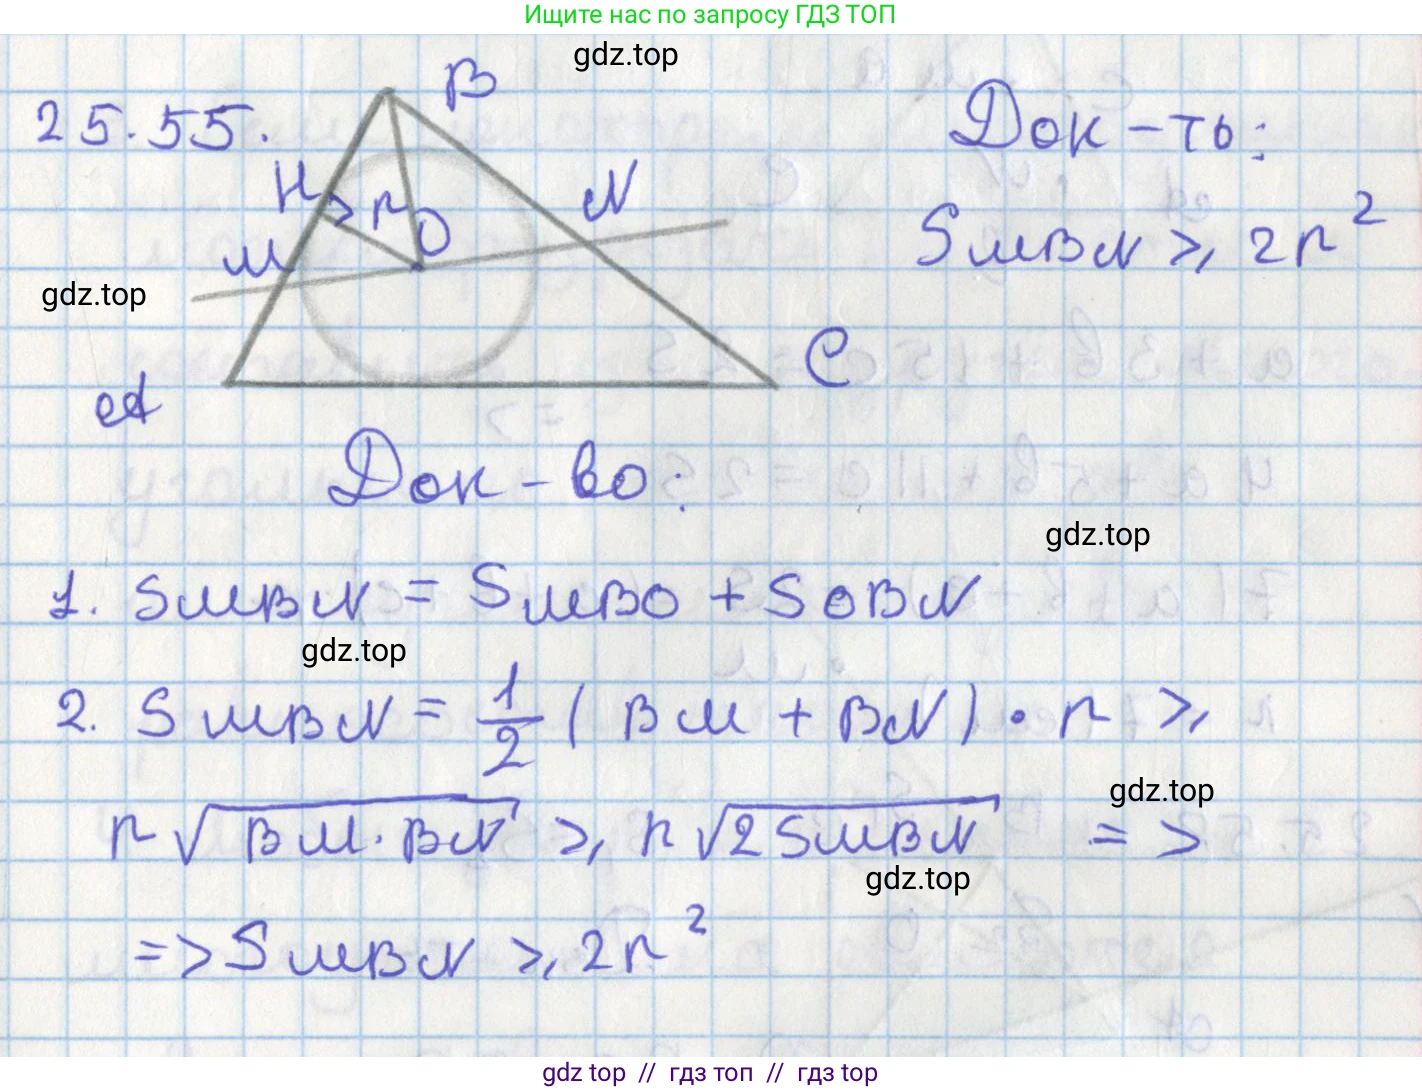 Ищите нас по запросу ГДЗ ТОП
gdz.top
25.55.
B
Док-ть:
H
r
N
S MBN ⩾ 2r²
M
O
gdz.top
C
A
Док-во:
gdz.top
1. SMBN = SMBO + SOBN
gdz.top
2. SMBN = 1/2 (BM + BN) · r ⩾
gdz.top
r√BM·BN ⩾ r√2SMBN =>
gdz.top
=> SMBN ⩾ 2r²
gdz top // гдз топ // гдз top